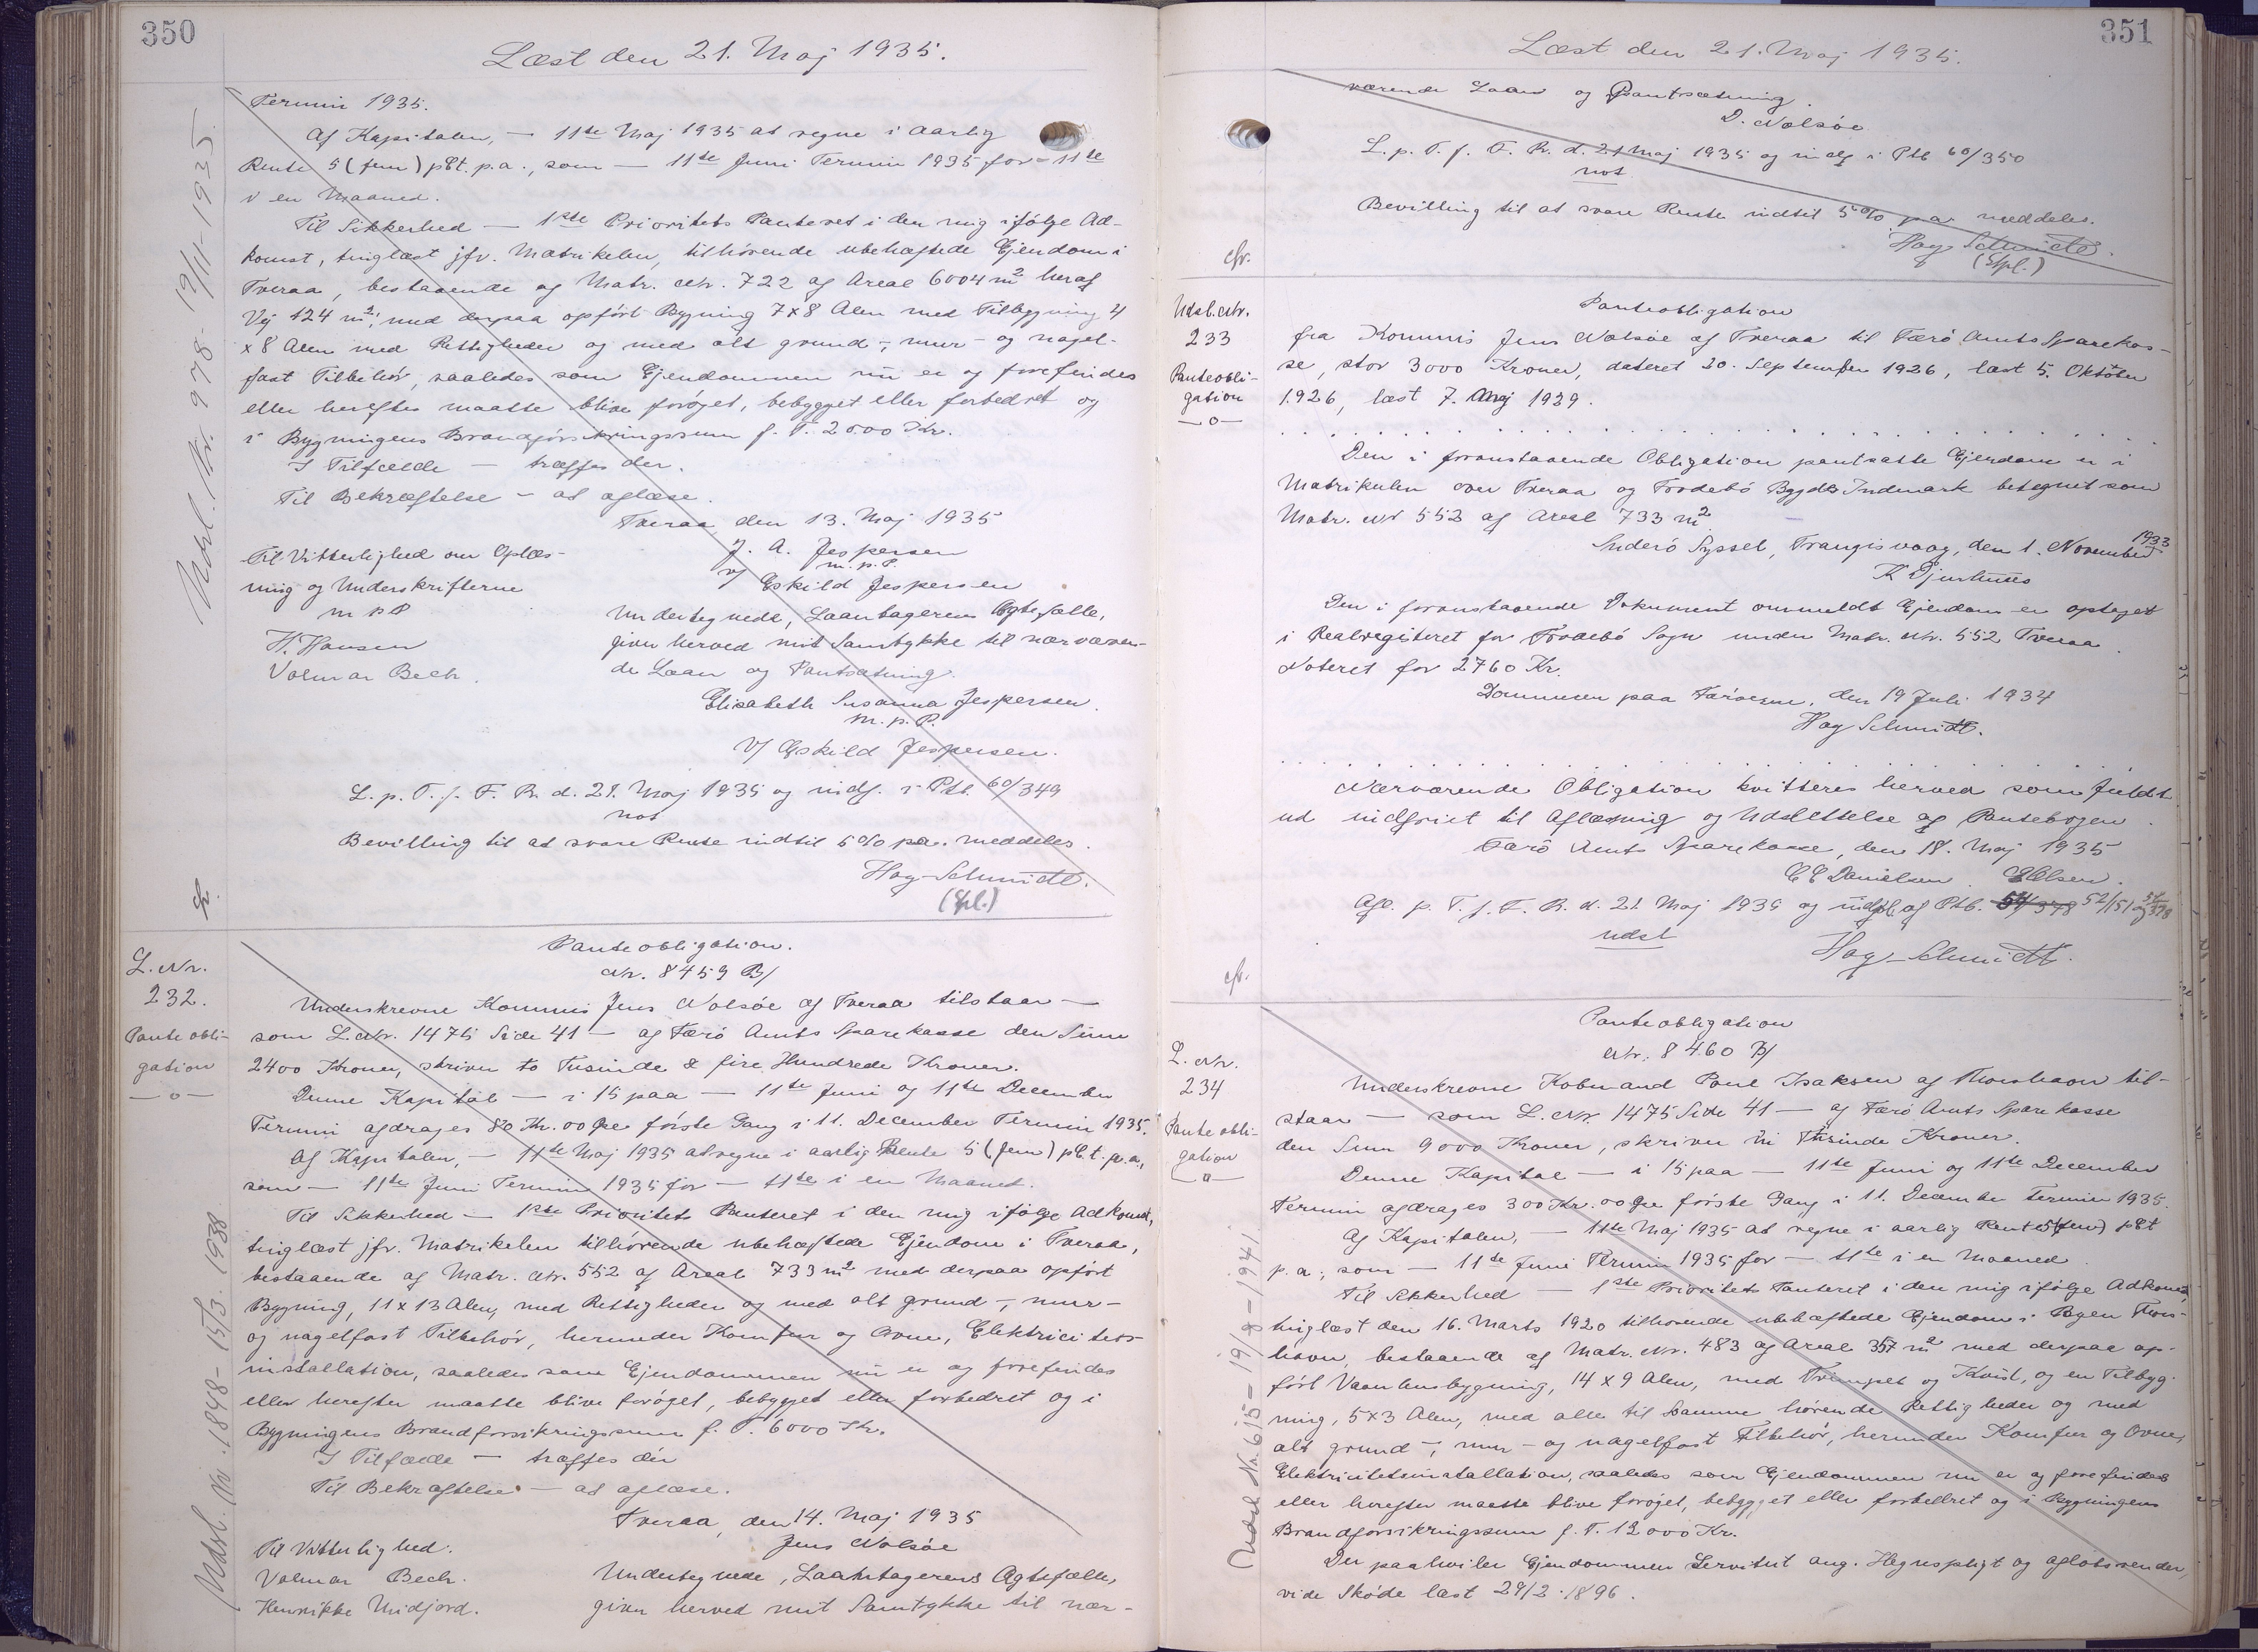 350
Læst den 21. Maj 1935.
Termin 1935.
Af Kapitalen, — 11te Maj 1935 at regne i aarlig
Rente 5 (fem) pCt. p.a., som — 11te Juni Termin 1935 for — 11te
i en Maaned.
Til Sikkerhed — 1ste Prioritets Panteret i den mig ifølge Ad-
komst, tinglæst jfr. Matrikelen, tilhørende ubehæftede Ejendom i
Tveraa, bestaaende af Matr. Nr. 722 af Areal 6004 m² heraf
Vej 124 m², med derpaa opført Bygning 7 x 8 Alen med Tilbygning 4
x 8 Alen med Rettigheder og med alt grund-, mur- og nagel-
fast Tilbehör, saaledes som Ejendommen nu er og forefindes
eller herefter maatte blive forøget, bebygget eller forbedret og
i Bygningens Brandforsikringssum f. T. 2000 Kr.
I Tilfælde — træffes der.
Til Bekræftelse — at aflæse.
Tveraa, den 13. Maj 1935
J. A. Jespersen
m. p. P.
v/ Eskild Jespersen
Til Vitterlighed om Oplæs-
ning og Underskrifterne
m p P
H. Hansen
Valmar Bech.
Undertegnede, Laantagerens Ægtefælle,
giver herved mit Samtykke til nærværen-
de Laan og Pantsætning.
Elisabeth Susanna Jespersen.
m. p. P.
V/ Eskild Jespersen.
L. p. T. f. F. R. d. 21. Maj 1935 og indf. i Ptb. 60/349
not
Bevilling til at svare Rente indtil 5% p.a. meddeles.
Hag-Schmidt.
(Spl.)
Udsl. Nr. 978 - 19/11-1935.
L. Nr.
232.
Panteobli-
gation
—o—
Panteobligation.
Nr. 8459 B/
Underskrevne Kommis Jens Nolsöe af Tveraa tilstaar —
som L.Nr. 1475 Side 41 — af Færö Amts Sparekasse den Sum
2400 Kroner, skriver to Tusinde & fire Hundrede Kroner.
Denne Kapital — i 15 paa — 11te Juni og 11te December
Termin afdrages 80 Kr. 00 Øre første Gang i 11. December Termin 1935.
Af Kapitalen, — 11te Maj 1935 at regne i aarlig Rente 5 (fem) pCt. p.a.,
som — 11te Juni Termin 1935 for — 11te i en Maaned.
Til Sikkerhed — 1ste Prioritets Panteret i den mig ifølge Adkomst,
tinglæst jfr. Matrikelen tilhørende ubehæftede Ejendom i Tveraa,
bestaaende af Matr. Nr. 552 af Areal 733 m² med derpaa opført
Bygning, 11 x 13 Alen, med Rettigheder og med alt grund-, mur-
og nagelfast Tilbehör, herunder Komfur og Ovne, Elektricitets-
installation, saaledes som Ejendommen nu er og forefindes
eller herefter maatte blive forøget, bebygget eller forbedret og i
Bygningens Brandforsikringssum f. T. 6000 Kr.
I Tilfælde — træffes der
Til Bekræftelse — at aflæse.
Tveraa, den 14. Maj 1935
Jens Nolsöe
Til Vitterlighed.
Valmar Bech.
Henrikke Midjord.
Undertegnede, Laantagerens Ægtefælle,
giver herved mit Samtykke til nær-
Udsl. Nr. 1848 - 15/3. 1938
351
Læst den 21. Maj 1935.
værende Laan og Pantsætning.
D. Nolsöe
L. p. T. f. F. R. d. 21 Maj 1935 og indf i Ptb 60/350
not
Bevilling til at svare Rente indtil 5% pa meddeles.
Hag Schmidt.
(Spl.)
cfr.
Udsl. Nr.
233
Panteobli-
gation
—o—
Panteobligation
fra Kommis Jens Nolsöe af Tveraa til Færö Amts Sparekas-
se, stor 3000 Kroner, dateret 20. September 1926, læst 5. Oktober
1926, læst 7. Maj 1929.
Den i foranstaaende Obligation pantsatte Ejendom er i
Matrikulen over Tveraa og Frodebö Bygdes Indmark betegnet som
Matr. Nr 552 af Areal 733 m²
Suderö Syssel, Trangisvaag, den 1. November 1933
K Djurhuus
Den i foranstaaende Dokument ommeldt Ejendom er optaget
i Realregisteret for Frodebö Sogn under Matr. Nr. 552 Tveraa.
Noteret for 2760 Kr.
Dommeren paa Færöerne, den 19 Juli 1934
Hag Schmidt.
Nærværende Obligation kvitteres herved som fuldt
ud indfriet til Aflæsning og Udslettelse af Pantebogen.
Færö Amts Sparekasse, den 18. Maj 1935
C E Danielsen
Afl. p. T. f. F. R. d. 21. Maj 1935 og udsl. af Ptb. 52/151 og 54/378
udsl
Hag-Schmidt.
cfr.
L. Nr.
234
Panteobli-
gation
—o—
Panteobligation
Nr. 8460 B/
Underskrevne Købmand Poul Isaksen af Thorshavn til-
staar — som L. Nr. 1475 Side 41 — af Færö Amts Sparekasse
den Sum 9000 Kroner, skriver ni Tusinde Kroner.
Denne Kapital — i 15 paa — 11te Juni og 11te December
Termin afdrages 300 Kr. 00 Øre første Gang i 11. December Termin 1935.
Af Kapitalen, — 11te Maj 1935 at regne i aarlig Rente 5 (fem) pCt
p.a., som — 11te Juni Termin 1935 for — 11te i en Maaned.
Til Sikkerhed — 1ste Prioritets Panteret i den mig ifølge Adkomst,
tinglæst den 16. Marts 1920 tilhørende ubehæftede Ejendom i Byen Thors-
havn, bestaaende af Matr. Nr. 483 af Areal 357 m² med derpaa op-
ført Vaanhusbygning, 14 x 9 Alen, med Trempel og Kvist, og en Tilbyg-
ning, 5x3 Alen, med alle til samme hørende Rettigheder og med
alt grund-, mur- og nagelfast Tilbehör, herunder Komfur og Ovne,
Elektricitetsinstallation, saaledes som Ejendommen nu er og forefindes
eller herefter maatte blive forøget, bebygget eller forbedret og i Bygningens
Brandforsikringssum f. T. 12000 Kr.
Der paahviler Ejendommen Servitut ang. Hegnspligt og Afløbsrender,
vide Skøde læst 29/2 1896.
Udsl. Nr. 615 - 19/9-1941